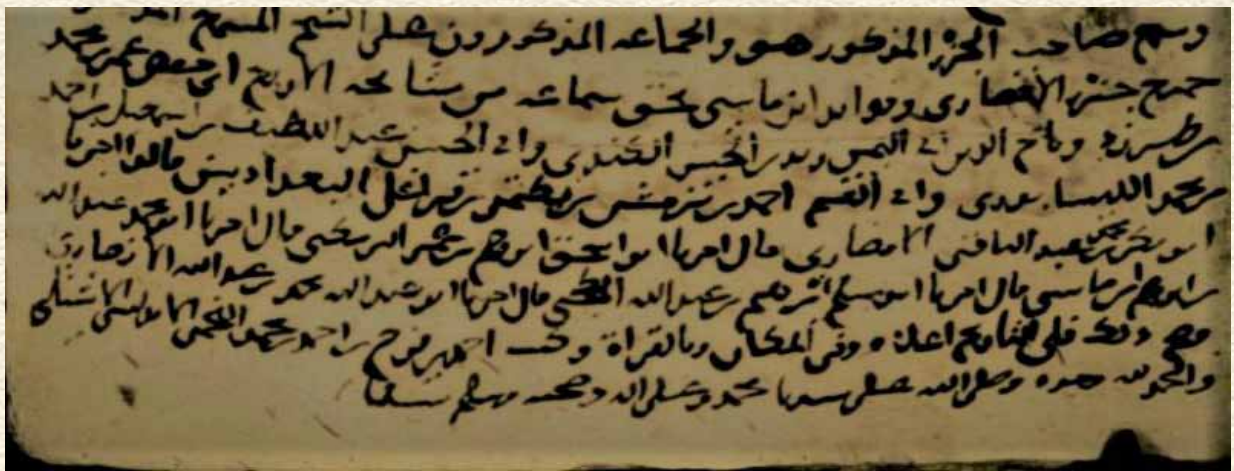 وسمع صاحب الجزء المذكور هو والجماعه المذكورون على الشيخ المسمع
جميع جزء الانصاري وفوايد ابن ماسي بحق سماعه من مشايخه الاربع ابي حفص عمر بن محمد
بن طبرزد وتاج الدين ابي اليمن زيد بن الحسن الكندي وابي الحسن عبد اللطيف بن اسمعيل بن احمد
بن محمد النيسابوري وابي القسم احمد بن تزمش بن بكتمر بن قزاغلي البغداديين قالوا اخبرنا
ابو بكر محمد بن عبد الباقي الانصاري قال اخبرنا ابو اسحق ابرهيم بن عمر البرمكي قال اخبرنا ابو محمد عبد الله
بن ابرهيم بن ماسي قال اخبرنا ابو مسلم ابرهيم بن عبد الله الكجي قال اخبرنا ابو عبد الله محمد بن عبد الله الانصاري
وصح ذلك في التاريخ اعلاه وفي المكان وبالقراة وكتب احمد بن فرح بن احمد بن محمد اللخمي الاشبيلي
والحمد لله وحده وصلى الله على سيدنا محمد وعلى اله وصحبه وسلم تسليما